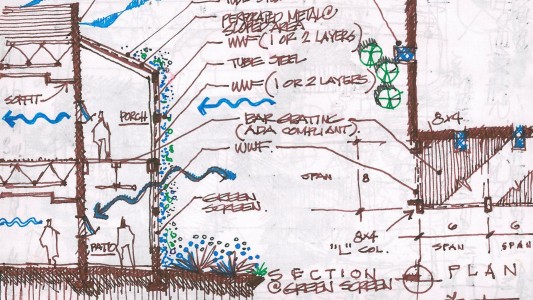 TUBE STEEL
PERFORATED METAL @
SLOPED AREA
WWF (1 OR 2 LAYERS)
TUBE STEEL
WWF (1 OR 2 LAYERS)
SOFFIT
PORCH
BAR GRATING
(ADA COMPLIANT).
WWF.
8x4
SPAN
8
GREEN
SCREEN.
8x4
"L" COL.
6
SPAN
6
SPAN
PATIO
SECTION
@ GREEN SCREEN
PLAN